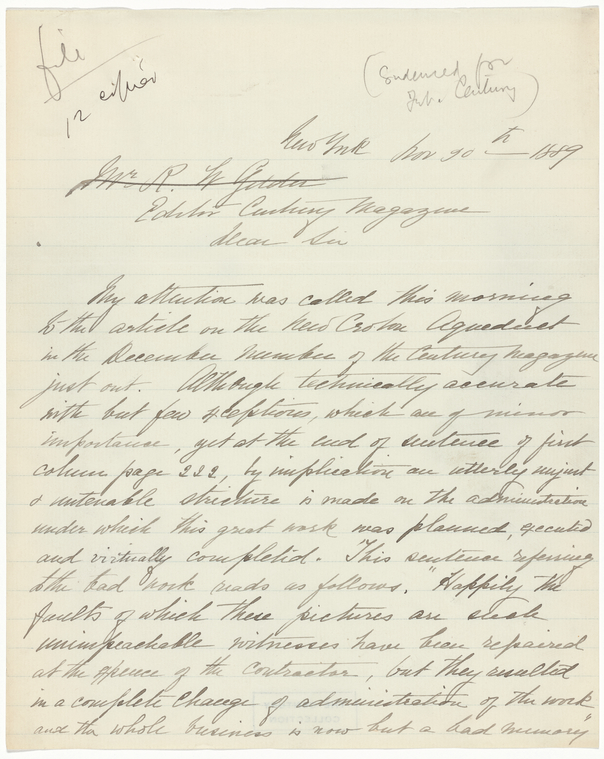 file
12 copies
(Condensed for
Feb. Century)
New York Nov 30th 1889
Mr R. W Gilder
Editor Century Magazine
Dear Sir
My attention was called this morning
to the article on the New Croton Aqueduct
in the December number of the Century Magazine
just out. Although technically accurate
with but few exceptions, which are of minor
importance, yet at the end of sentence of first
column page 222, by implication an utterly unjust
& untenable stricture is made on the administration
under which this great work was planned, executed
and virtually completed. This sentence referring
to the bad work reads as follows. "Happily the
faults of which these pictures are such
unimpeachable witnesses have been repaired
at the expence of the contractor, but they resulted
in a complete change of administration of the work
and the whole business is now but a bad memory"